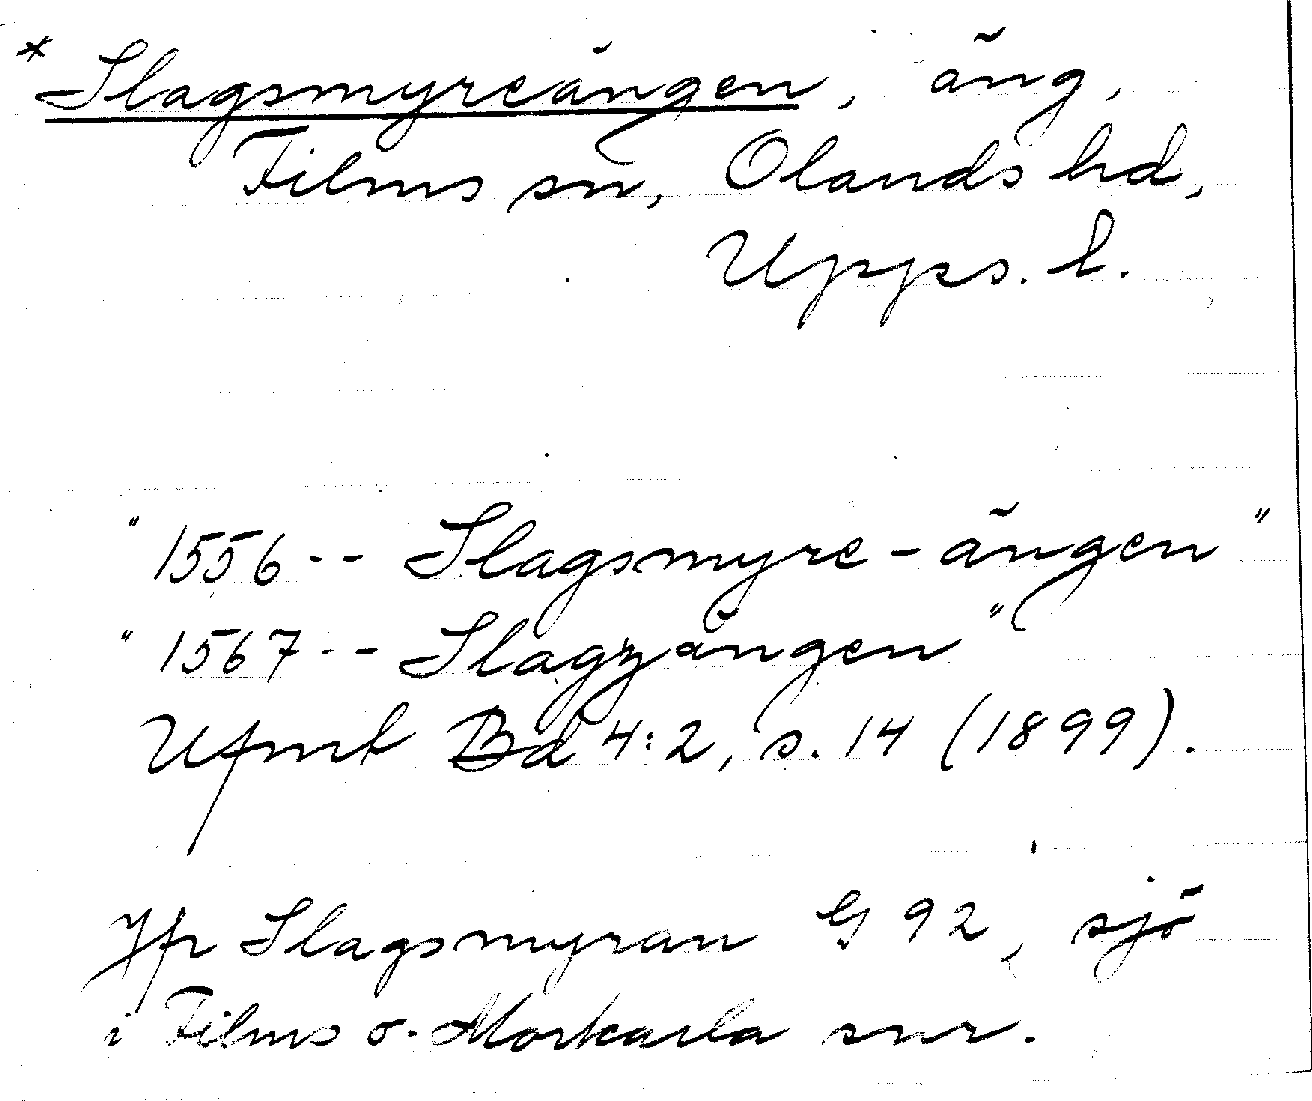 * Slagsmyreängen, äng,
Films sn, Olands hd,
Upps. l.
"1556 -- Slagsmyre-ängen"
"1567 -- Slagzängen"
Ufmt Bd 4:2, s. 14 (1899).
Jfr Slagsmyran G 92, sjö
i Films o. Morkarla snr.